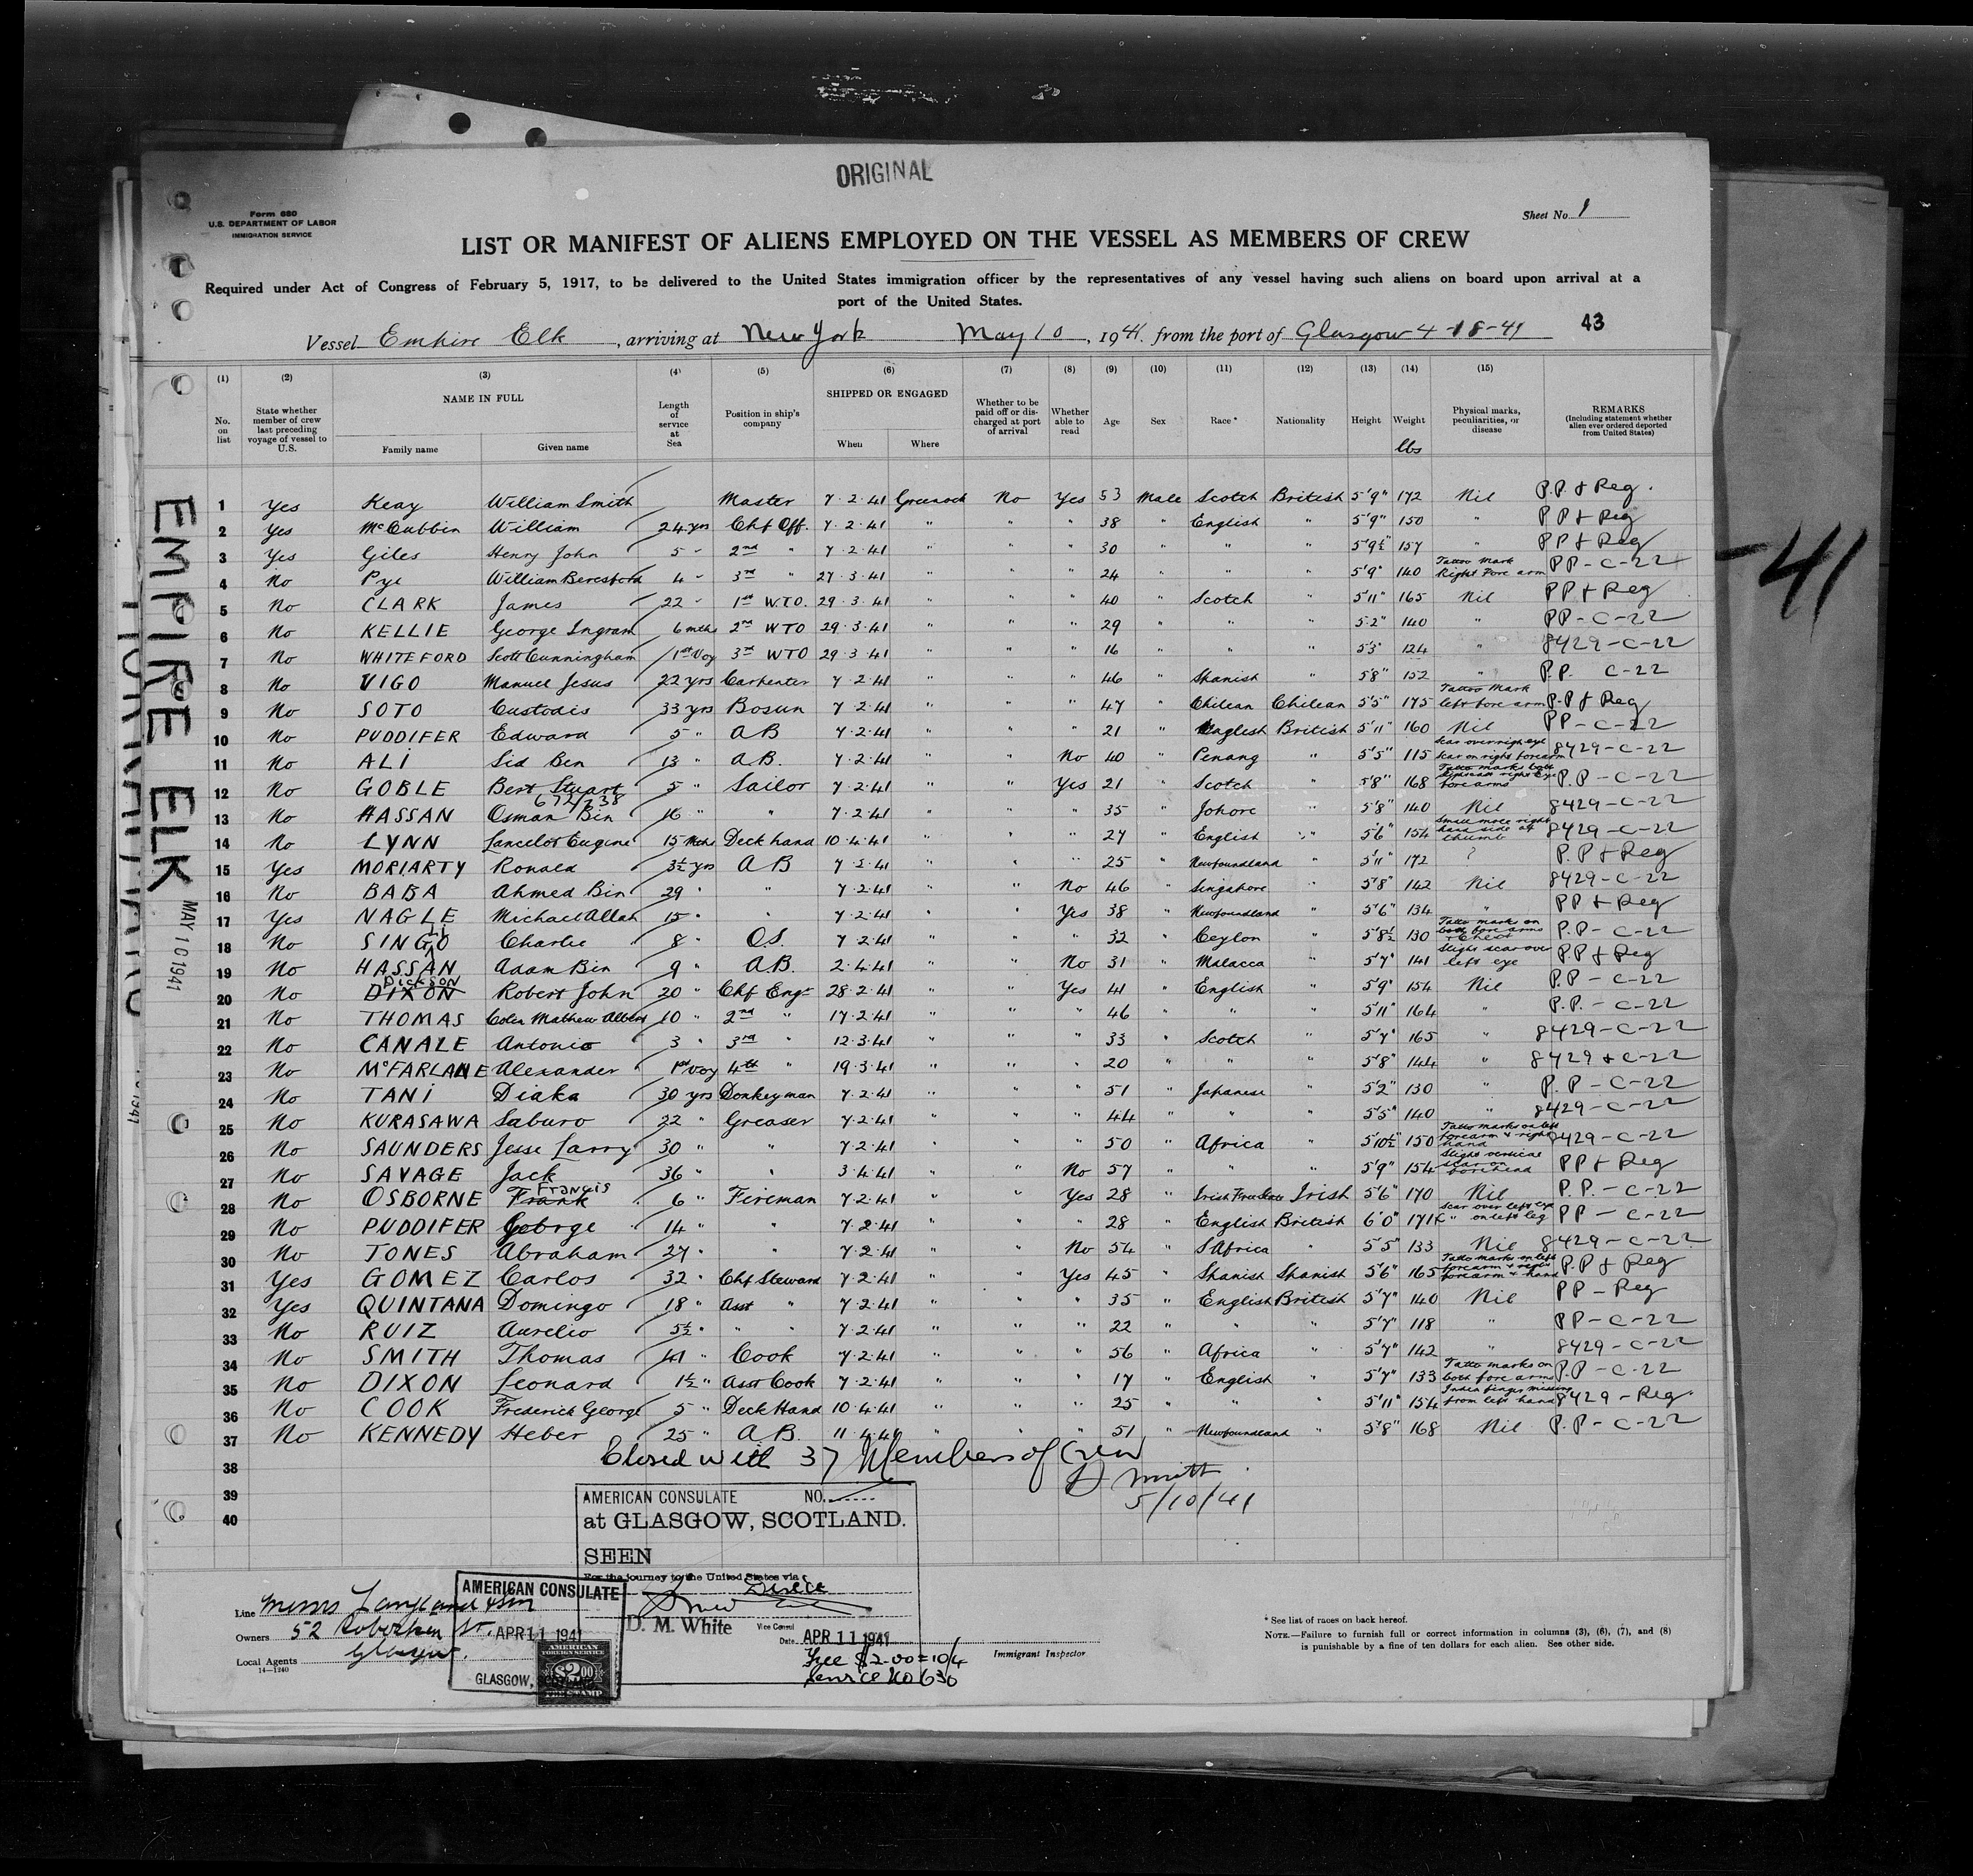 ORIGINAL
Form 680
U.S. DEPARTMENT OF LABOR
IMMIGRATION SERVICE
Sheet No. 1
LIST OR MANIFEST OF ALIENS EMPLOYED ON THE VESSEL AS MEMBERS OF CREW
Required under Act of Congress of February 5, 1917, to be delivered to the United States immigration officer by the representatives of any vessel having such aliens on board upon arrival at a
port of the United States.
Vessel Empire Elk, arriving at New York May 10, 1941, from the port of Glasgow 4-18-41 43
(1) (2) (3) (4) (5) (6) (7) (8) (9) (10) (11) (12) (13) (14) (15)
No. on list State whether member of crew last preceding voyage of vessel to U.S. NAME IN FULL Family name Given name Length of service at Sea Position in ship's company SHIPPED OR ENGAGED When Where Whether to be paid off or discharged at port of arrival Whether able to read Age Sex Race* Nationality Height Weight lbs Physical marks, peculiarities, or disease REMARKS (Including statement whether alien ever ordered deported from United States)
1 Yes Keay William Smith Master 7.2.41 Greenock No Yes 53 Male Scotch British 5'9" 172 Nil P.P. & Reg.
2 Yes McCubbin William 24 yrs Chf Off. 7.2.41 " " " 38 " English " 5'9" 150 " PP & Reg
3 Yes Giles Henry John 5 " 2nd " 7.2.41 " " " 30 " " " 5'9½" 157 " PP & Reg
4 No Pye William Beresford 4 " 3rd " 27.3.41 " " " 24 " " " 5'9" 140 Tattoo Mark Right Fore arm PP-C-22
5 No CLARK James 22 " 1st W.T.O. 29.3.41 " " " 40 " Scotch " 5'11" 165 Nil PP & Reg
6 No KELLIE George Ingram 6 mths 2nd WTO 29.3.41 " " " 29 " " " 5'2" 140 " PP-C-22
7 No WHITEFORD Scott Cunningham 1st Voy 3rd WTO 29.3.41 " " " 16 " " " 5'3" 124 " 8429-C-22
8 No VIGO Manuel Jesus 22 yrs Carpenter 7.2.41 " " " 46 " Spanish " 5'8" 152 " P.P. C-22
9 No SOTO Custodis 33 yrs Bosun 7.2.41 " " " 47 " Chilean Chilean 5'5" 175 Tattoo Mark left fore arm P.P & Reg
10 No PUDDIFER Edward 5 " AB 7.2.41 " " " 21 " English British 5'11" 160 Nil PP-C-22
11 No ALI Sid Ben 13 " A.B. 7.2.41 " " No 40 " Penang " 5'5" 115 Scar over righ eye Scar on right forearm 8429-C-22
12 No GOBLE Bert Stuart 5 " Sailor 7.2.41 " " Yes 21 " Scotch " 5'8" 168 Tatto marks both forearms P.P-C-22
672/738
13 No HASSAN Osman Bin 16 " " 7.2.41 " " " 35 " Johore " 5'8" 140 Nil 8429-C-22
14 No LYNN Lancelot Eugine 15 Mths Deck hand 10.4.41 " " " 27 " English " 5'6" 154 Small mole right hand side of thumb 8429-C-22
15 Yes MORIARTY Ronald 3½ yrs AB 7.2.41 " " " 25 " Newfoundland " 5'11" 172 ? P.P & Reg
16 No BABA Ahmed Bin 29 " " 7.2.41 " " No 46 " Singapore " 5'8" 142 Nil 8429-C-22
17 Yes NAGLE Michael Allah 15 " " 7.2.41 " " Yes 38 " Newfoundland " 5'6" 134 " PP & Reg
18 No SINGO Charlie 8 " O.S. 7.2.41 " " " 32 " Ceylon " 5'8½ 130 Tatto marks on both fore arms + Chest P.P-C-22
19 No HASSAN Adam Bin 9 " A.B. 2.4.41 " " No 31 " Malacca " 5'7" 141 Slight scar over left eye PP & Reg
20 No DIXON Dickson Robert John 20 " Chf Engr 28.2.41 " " Yes 41 " English " 5'9" 154 Nil P.P-C-22
21 No THOMAS Colin Mathew Albert 10 " 2nd " 17.2.41 " " " 46 " " " 5'11" 164 " P.P.-C-22
22 No CANALE Antonio 3 " 3rd " 12.3.41 " " " 33 " Scotch " 5'7" 165 " 8429-C-22
23 No McFARLANE Alexander 1st Voy 4th " 19.3.41 " " " 20 " " " 5'8" 144 " 8429 & C-22
24 No TANI Diaka 30 yrs Donkeyman 7.2.41 " " " 51 " Japanese " 5'2" 130 " P.P-C-22
25 No KURASAWA Saburo 22 " Greaser 7.2.41 " " " 44 " " " 5'5" 140 " 8429-C-22
26 No SAUNDERS Jesse Larry 30 " " 7.2.41 " " " 50 " Africa " 5'10½" 150 Tatto marks on left forearm & right hand 8429-C-22
27 No SAVAGE Jack 36 " " 3.4.41 " " No 57 " " " 5'9" 154 Slight vertical scar on forehead PP & Reg
28 No OSBORNE Frank Francis 6 " Fireman 7.2.41 " " Yes 28 " Irish Free State Irish 5'6" 170 Nil P.P.-C-22
29 No PUDDIFER George 14 " " 7.2.41 " " " 28 " English British 6'0" 171 Scar over left eye " on left leg PP-C-22
30 No TONES Abraham 27 " " 7.2.41 " " No 54 " S Africa " 5'5" 133 Nil 8429-C-22
31 Yes GOMEZ Carlos 32 " Chf Steward 7.2.41 " " Yes 45 " Spanish Spanish 5'6" 165 Tatto marks on left forearm & right forearm & hand P.P & Reg
32 Yes QUINTANA Domingo 18 " Asst " 7.2.41 " " " 35 " English British 5'7" 140 Nil PP-Reg
33 No RUIZ Aurelio 5½ " " " 7.2.41 " " " 22 " " " 5'7" 118 " PP-C-22
34 No SMITH Thomas 41 " Cook 7.2.41 " " " 56 " Africa " 5'7" 142 " 8429-C-22
35 No DIXON Leonard 1½ " Asst Cook 7.2.41 " " " 17 " English " 5'7" 133 Tatto marks on both fore arms P.P-C-22
36 No COOK Frederick George 5 " Deck Hand 10.4.41 " " " 25 " " " 5'11" 154 Index finger missing from left hand 8429-Reg.
37 No KENNEDY Heber 25 " A.B. 11.4.41 " " " 51 " Newfoundland " 5'8" 168 Nil P.P-C-22
38 Closed with 37 Members of Crew
39 Smith
5/10/41
40
EMPIRE ELK MAY 10 1941
-41
AMERICAN CONSULATE NO.
at GLASGOW, SCOTLAND.
SEEN
For the journey to the United States via Direct
D. M. White Vice Consul
Date APR 11 1941
Fee $2.00 = 10/4
Service No 630
AMERICAN CONSULATE
APR 11 1941
GLASGOW, SCOTLAND
AMERICAN FOREIGN SERVICE
$2.00
FEE STAMP
Line Messrs Langland & Son
Owners 52 Robertson St.
Local Agents Glasgow.
14—1240
Immigrant Inspector
* See list of races on back hereof.
NOTE.—Failure to furnish full or correct information in columns (3), (6), (7), and (8)
is punishable by a fine of ten dollars for each alien. See other side.